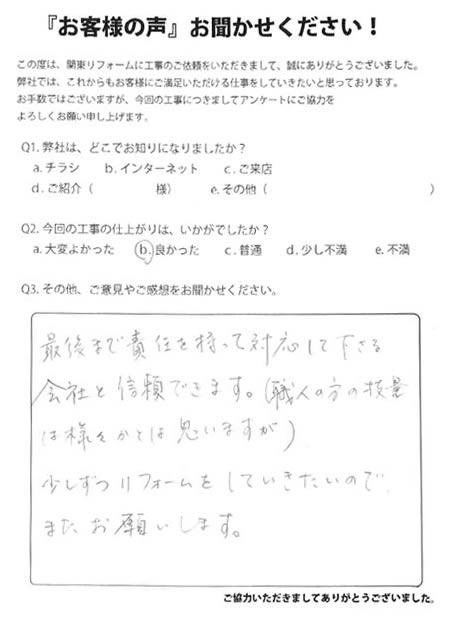 『お客様の声』お聞かせください！
この度は、関東リフォームに工事のご依頼をいただきまして、誠にありがとうございました。
弊社では、これからもお客様にご満足いただける仕事をしていきたいと思っております。
お手数ではございますが、今回の工事につきましてアンケートにご協力を
よろしくお願い申し上げます。
Q1. 弊社は、どこでお知りになりましたか？
a. チラシ b. インターネット c. ご来店
d. ご紹介（ 様） e. その他（ ）
Q2. 今回の工事の仕上がりは、いかがでしたか？
a. 大変よかった b. 良かった c. 普通 d. 少し不満 e. 不満
Q3. その他、ご意見やご感想をお聞かせください。
最後まで責任を持って対応して下さる
会社と信頼できます。(職人の方の技量
は様々かとは思いますが)
少しずつリフォームをしていきたいので、
またお願いします。
ご協力いただきましてありがとうございました。